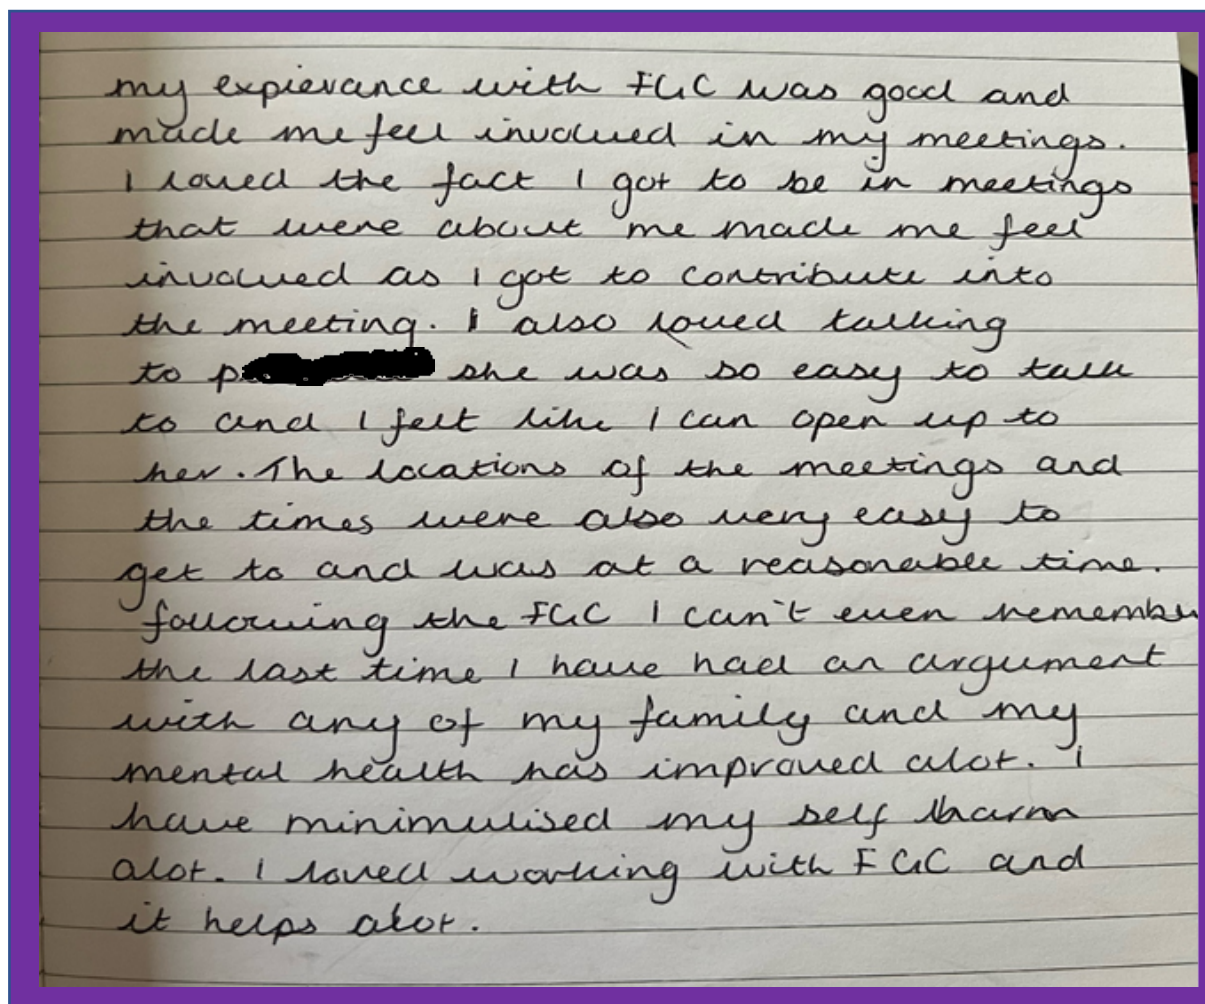 my expierance with FGC was good and
made me feel involved in my meetings.
I loved the fact I got to be in meetings
that were about me made me feel
involved as I got to contribute into
the meeting. I also loved talking
to p she was so easy to talk
to and I felt like I can open up to
her. The locations of the meetings and
the times were also very easy to
get to and was at a reasonable time.
following the FGC I can't even remember
the last time I have had an argument
with any of my family and my
mental health has improved alot. I
have minimulised my self harm
alot. I loved working with FGC and
it helps alot.